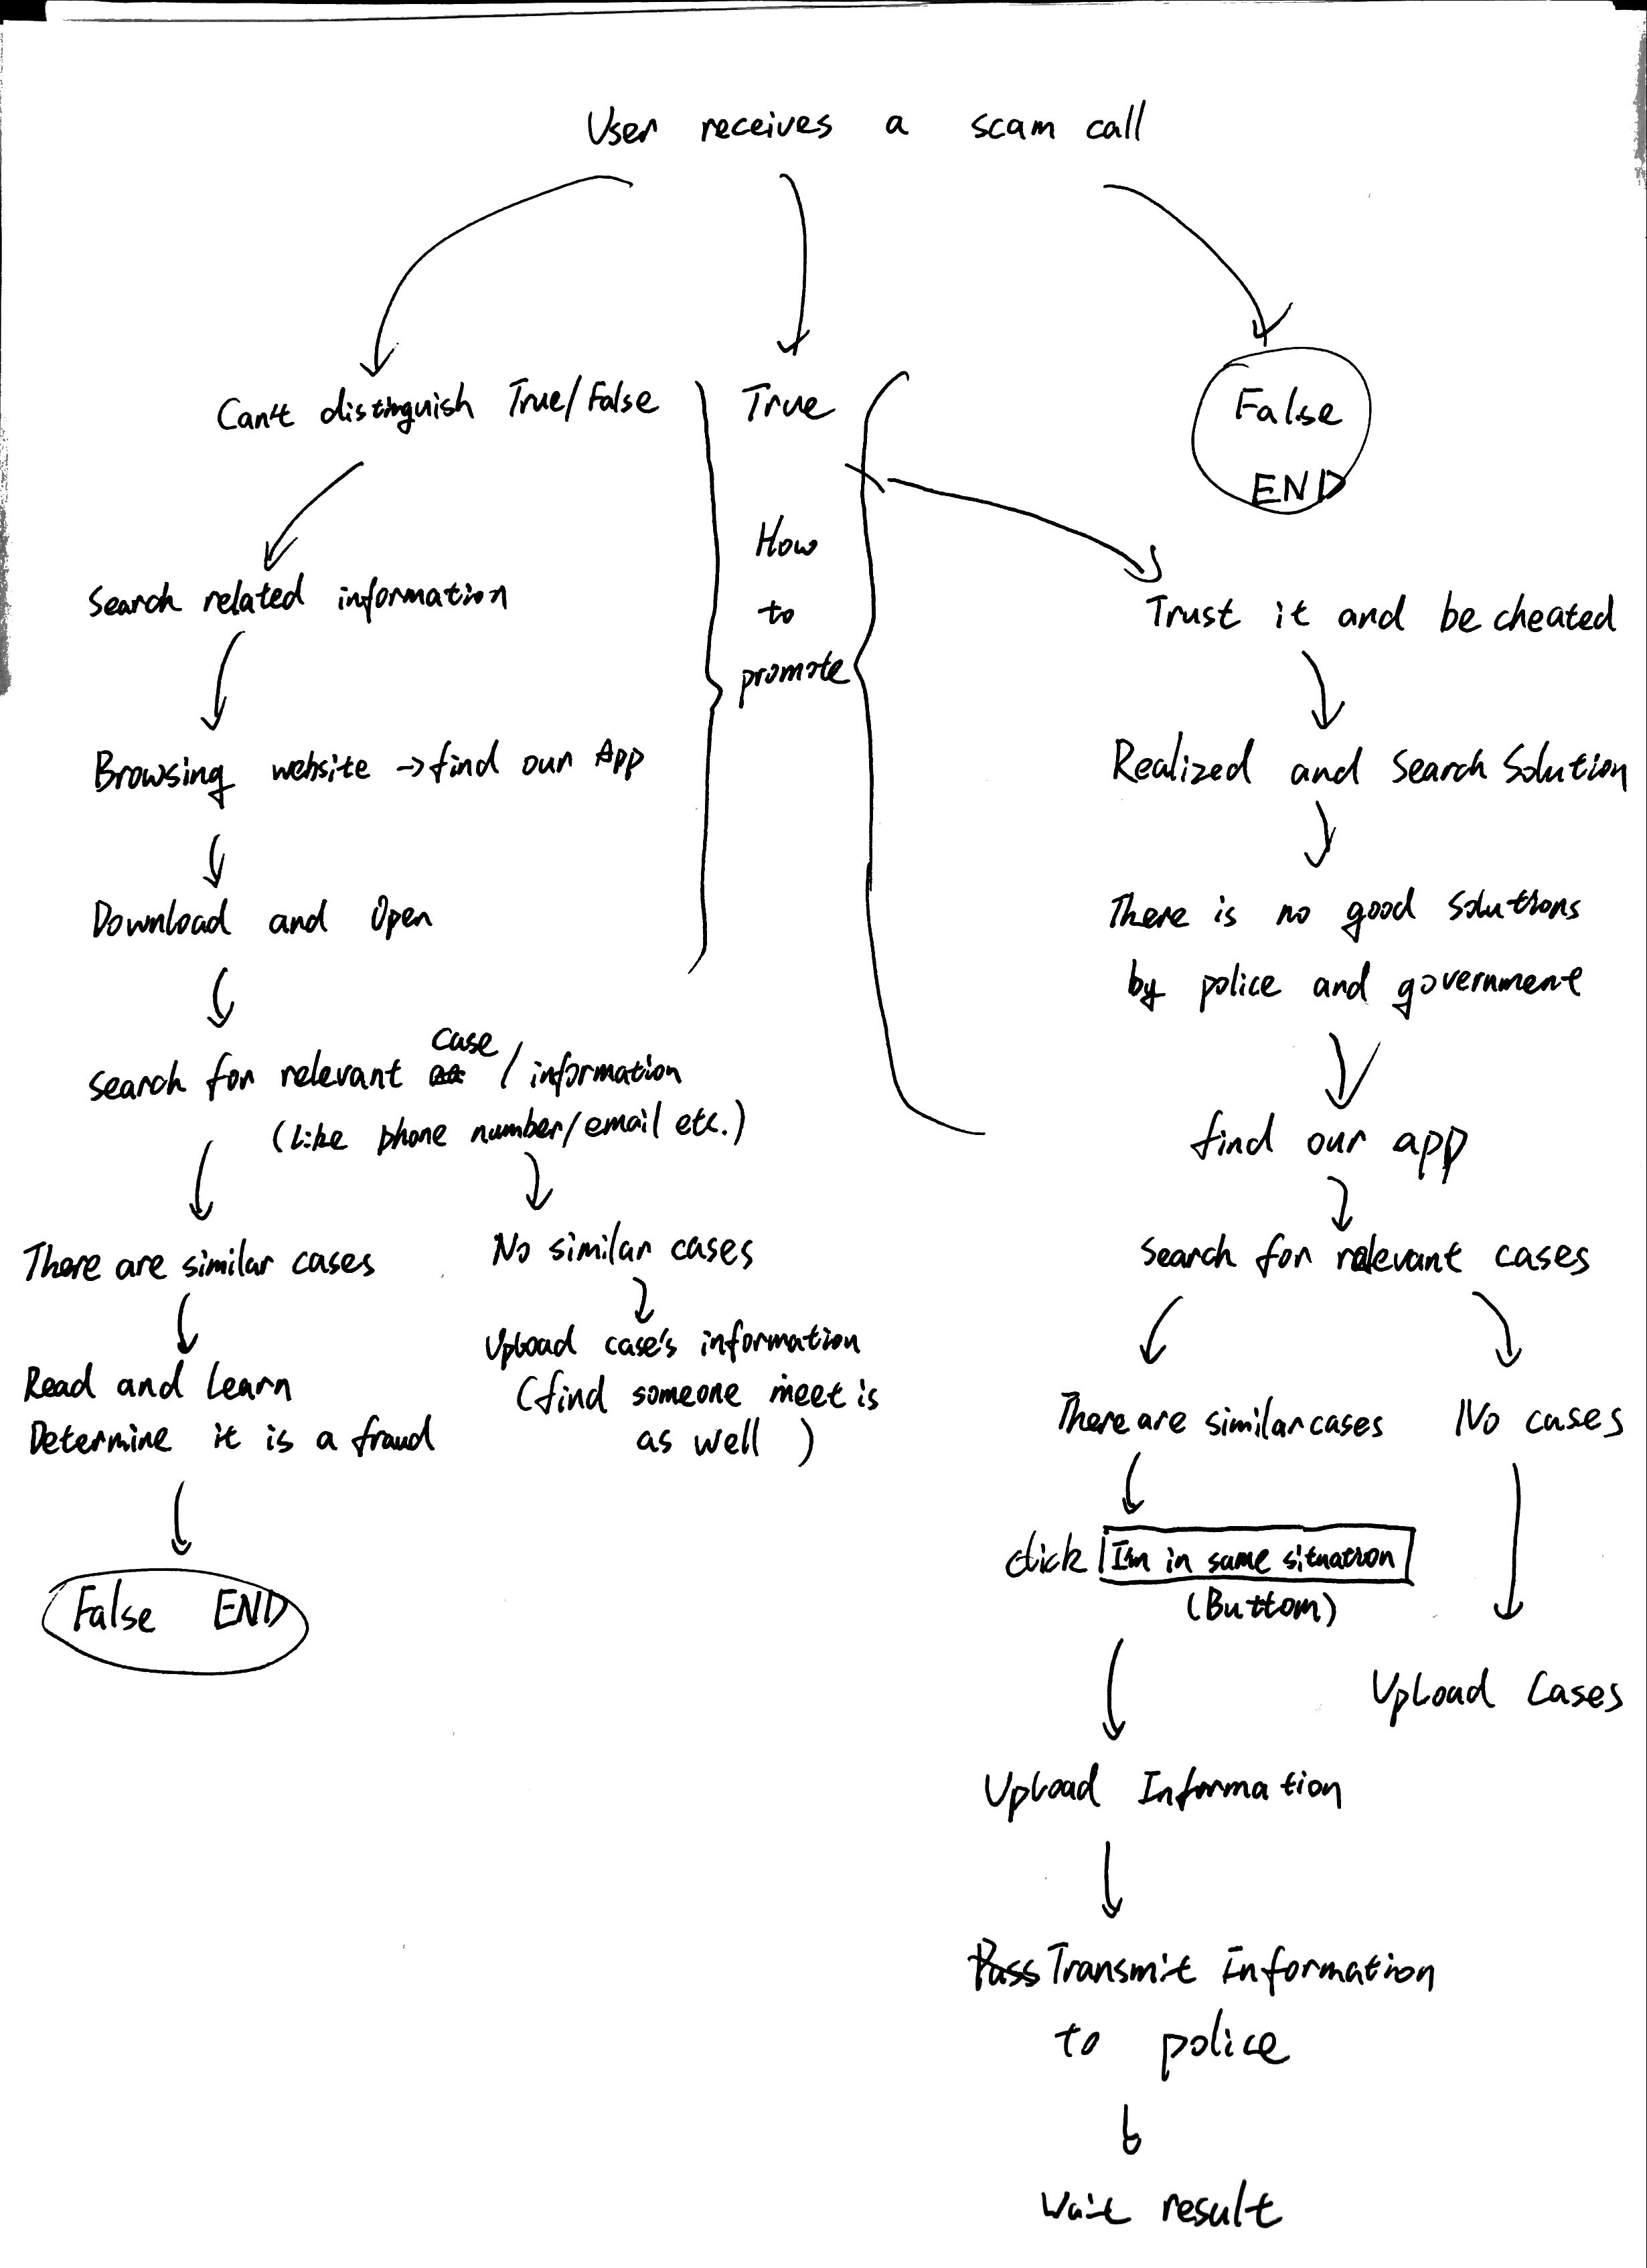 User receives a scam call
Can't distinguish True/False
True
False
END
How
to
promote
Search related information
Browsing website → find our App
Download and Open
Search for relevant case / information
(like phone number/email etc.)
There are similar cases
Read and learn
Determine it is a fraud
False END
No similar cases
Upload case's information
(find someone meet is
as well)
Trust it and be cheated
Realized and Search Solution
There is no good solutions
by police and government
find our app
Search for relevant cases
There are similar cases
No cases
click I'm in same situation
(Buttom)
Upload Cases
Upload Information
Pass Transmit Information
to police
Wait result